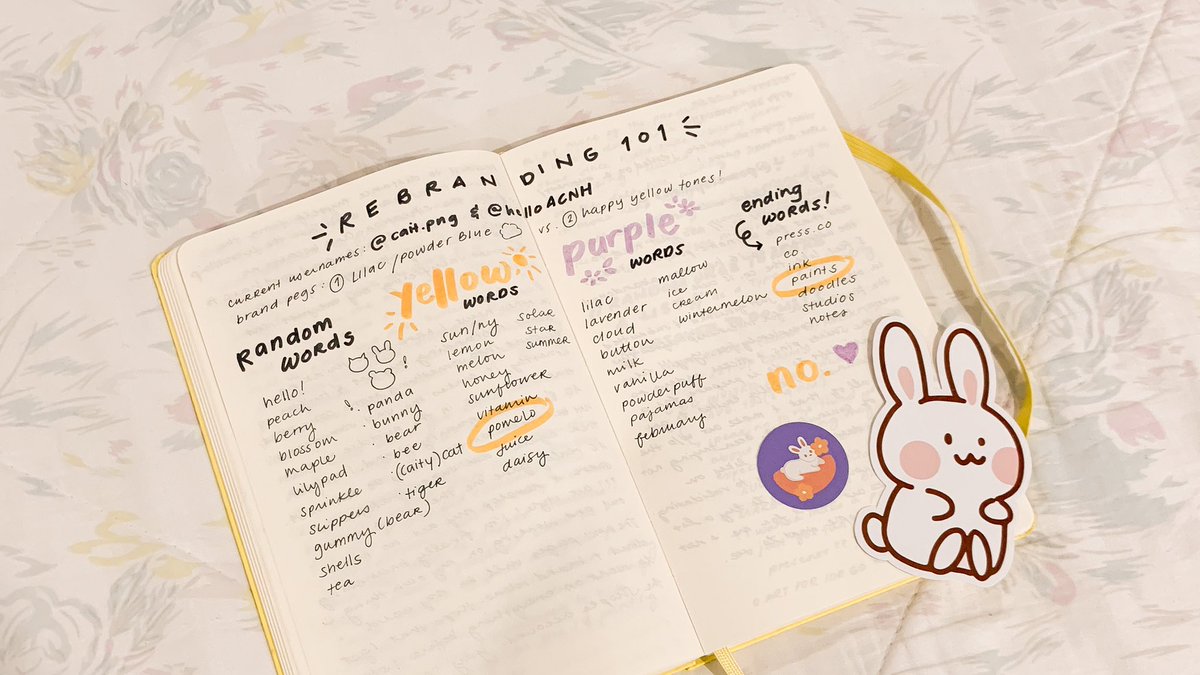 REBRANDING 101
current usernames: @cait.png & @helloACNH
brand pegs: 1 Lilac/powder Blue vs. 2 happy yellow tones!
Random
WORDS
hello!
peach
berry
blossom
maple
lilypad
sprinkle
slippers
gummy (bear)
shells
tea
!
!
· panda
· bunny
· bear
· bee
· (caity)cat
· tiger
yellow
WORDS
sun/ny
lemon
melon
honey
sunflower
vitamin
pomelo
juice
daisy
solar
star
summer
purple
WORDS
lilac
lavender
cloud
button
milk
vanilla
powderpuff
pajamas
february
mallow
ice
cream
wintermelon
ending
words!
press.co
co
ink
paints
doodles
studios
notes
no.